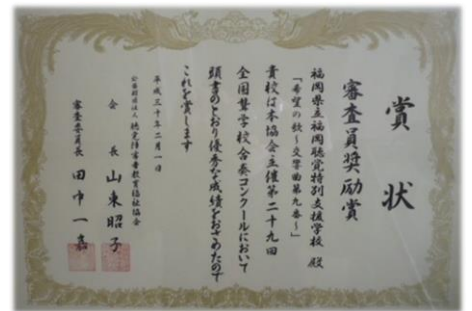 賞状
審査員奨励賞
福岡県立福岡聴覚特別支援学校 殿
「希望の歌~交響曲第九番~」
貴校は本協会主催第二十九回
全国聾学校合奏コンクールにおいて
頭書のとおり優秀な成績をおさめたので
これを賞します
平成三十年二月一日
公益財団法人 聴覚障害者教育福祉協会
会長 山東昭子
審査委員長 田中一嘉